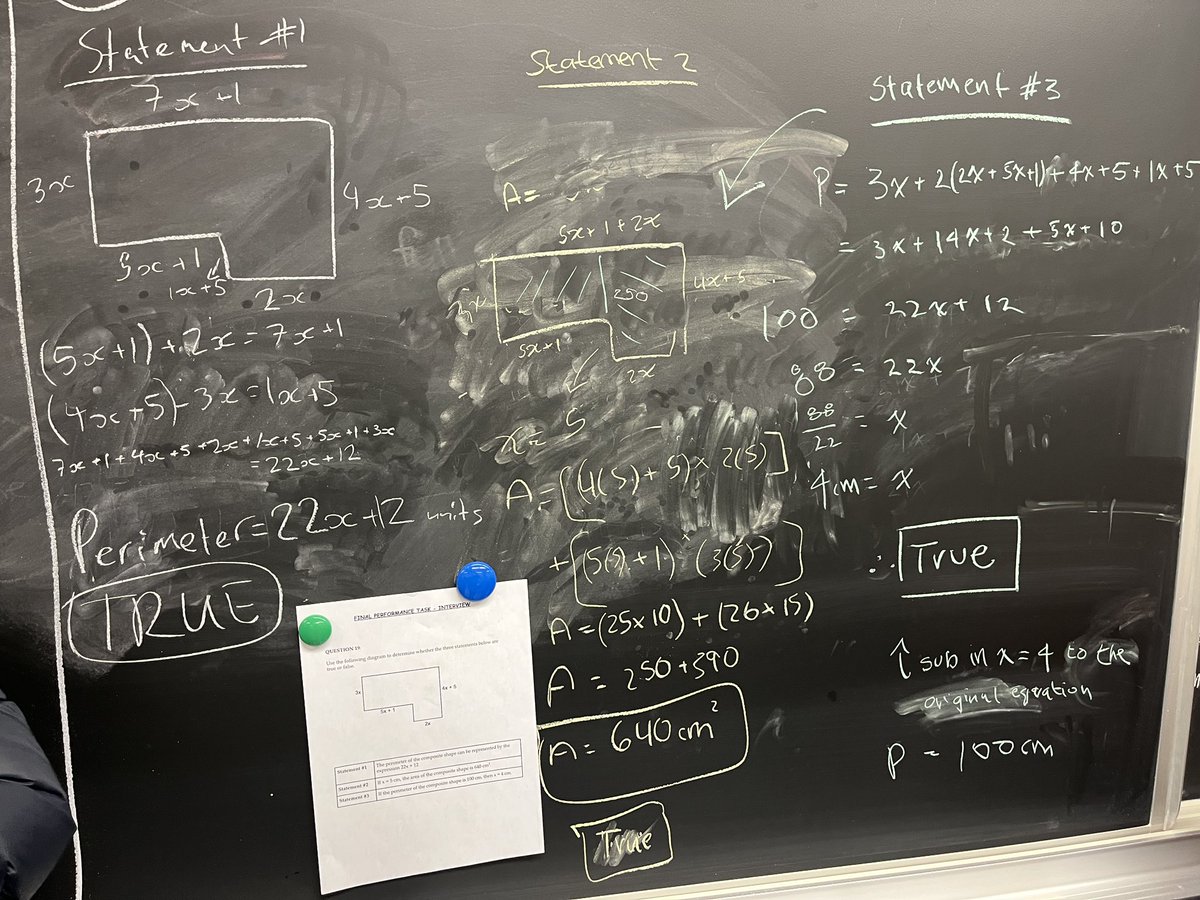 Statement #1
7x+1
3x
4x+5
5x+1
1x+5
2x
(5x+1)+2x=7x+1
(4x+5)-3x=1x+5
7x+1+4x+5+2x+1x+5+5x+1+3x
=22x+12
Perimeter=22x+12 units
TRUE
Statement 2
A=
5x+1+2x
3x
250
4x+5
5x+1
2x
x=5
A=[(4(5)+5)×2(5)]
+[(5(5)+1)×(3(5))]
A=(25×10)+(26×15)
A=250+390
A=640cm²
True
Statement #3
P=3x+2(2x+5x+1)+4x+5+1x+5
=3x+14x+2+5x+10
100=22x+12
88=22x
88/22=x
4cm=x
∴ True
↑ sub in x=4 to the
original equation
P=100cm
FINAL PERFORMANCE TASK - INTERVIEW
QUESTION 19:
Use the following diagram to determine whether the three statements below are
true or false.
3x
4x + 5
5x + 1
2x
Statement #1 The perimeter of the composite shape can be represented by the
expression 22x + 12
Statement #2 If x = 5 cm, the area of the composite shape is 640 cm².
Statement #3 If the perimeter of the composite shape is 100 cm, then x = 4 cm.